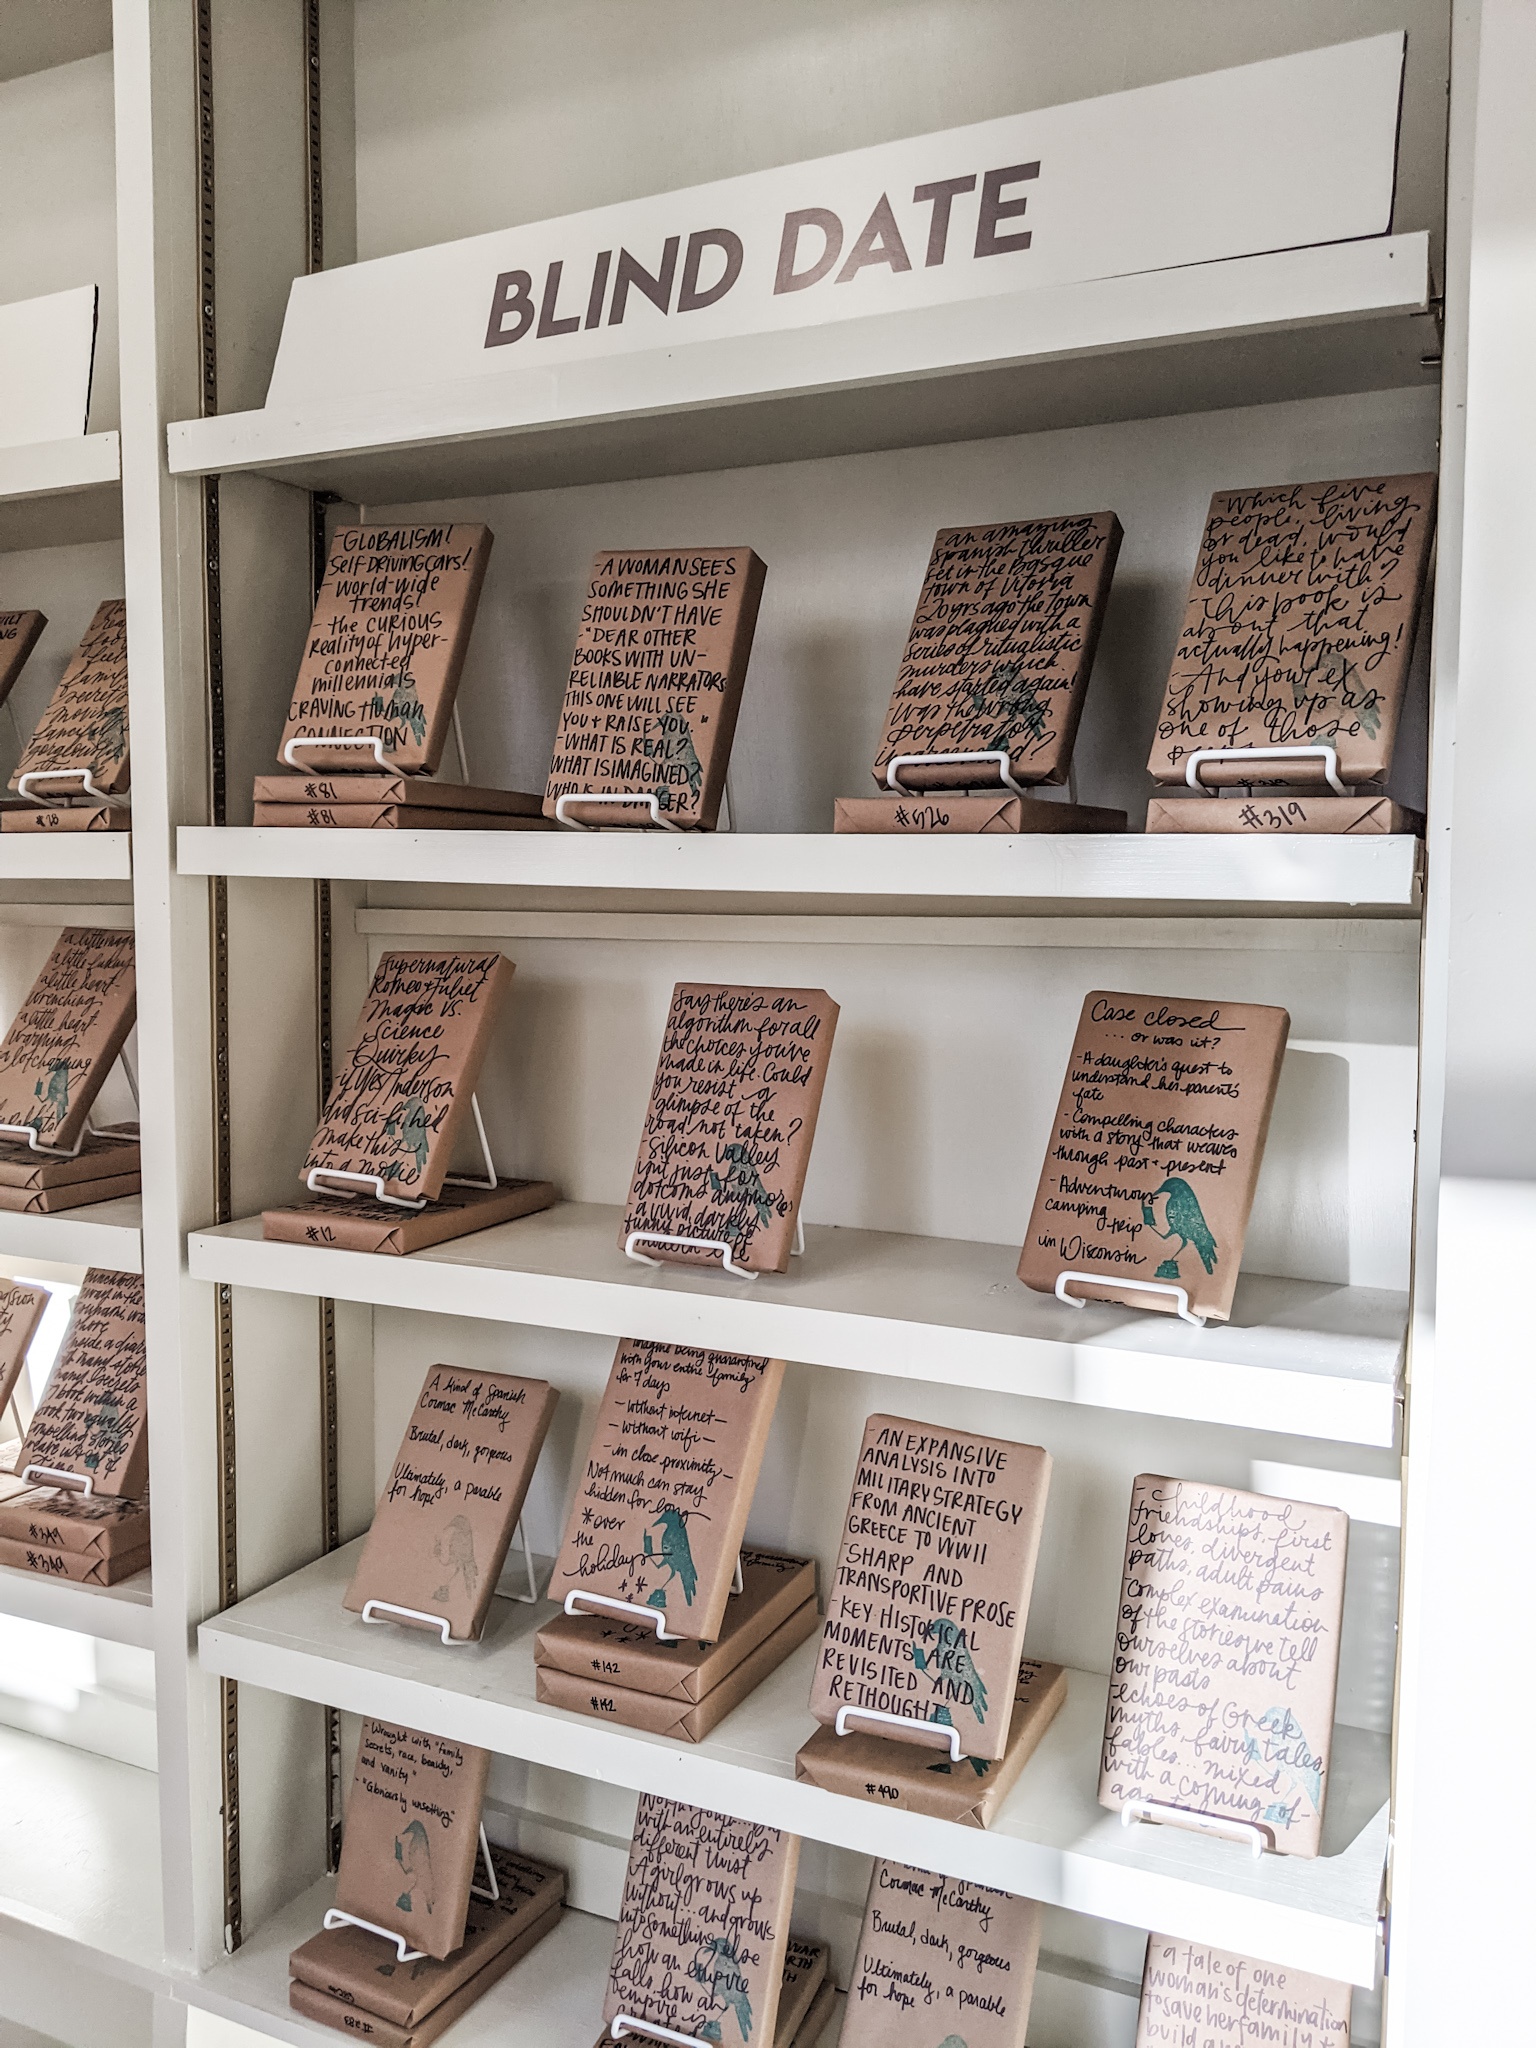 BLIND DATE
-GLOBALISM!
Self DRIVING cars!
-World-wide
trends!
-the curious
Reality of hyper-
connected
millennials
CRAVING HUMAN
CONNECTION
#81
#81
-A WOMAN SEES
SOMETHING SHE
SHOULDN'T HAVE
-"DEAR OTHER
BOOKS WITH UN-
RELIABLE NARRATORS
THIS ONE WILL SEE
YOU + RAISE YOU."
-WHAT IS REAL?
WHAT IS IMAGINED?
WHO IS IN DANGER?
-an amazing
Spanish thriller
set in the Basque
town of Vitoria
-20 yrs ago the town
was plagued with a
series of ritualistic
murders which
have started again!
-Was the wrong
perpetrator
incarcerated?
#526
-Which five
people, living
or dead, would
you like to have
dinner with?
-This book is
about that
actually happening!
-And your ex
showing up as
one of those
#319
Supernatural
Romeo + Juliet
Magic vs.
Science
Quirky
-if Wes Anderson
did sci-fi, he'd
make this
into a movie
#12
Say there's an
algorithm for all
the choices you've
made in life. Could
you resist a
glimpse of the
road not taken?
-Silicon Valley
isn't just for
dotcoms anymore
-a vivid, darkly
funny picture of
modern life
Case closed
...or was it?
-A daughter's quest to
understand her parent's
fate
-Compelling characters
with a story that weaves
through past + present
-Adventurous
camping trip
in Wisconsin
A kind of Spanish
Cormac McCarthy
Brutal, dark, gorgeous
Ultimately, a parable
for hope
Imagine being quarantined
with your entire family
for 7 days
-without internet-
-without wifi-
-in close proximity-
Not much can stay
hidden for long
*over
the
holidays
#142
#142
-AN EXPANSIVE
ANALYSIS INTO
MILITARY STRATEGY
FROM ANCIENT
GREECE TO WWII
-SHARP AND
TRANSPORTIVE PROSE
-KEY HISTORICAL
MOMENTS ARE
REVISITED AND
RETHOUGHT
#490
-Childhood
friendships, first
loves, divergent
paths, adult pains
-complex examination
of the stories we tell
ourselves about
our pasts
-echoes of Greek
myths, fairy tales,
fables... mixed
with a coming-of-
age
-Wrought with "family
secrets, race, beauty,
and vanity"
-"Gloriously unsettling"
#283
with an entirely
different twist
-A girl grows up
without... and grows
into something else
-how an empire
falls, how an
empire is
created
Cormac McCarthy
Brutal, dark, gorgeous
Ultimately, a parable
for hope
-a tale of one
woman's determination
to save her family +
build
-a little
-a little
-a little heart-
wrenching
-a little heart-
warming
-a lot charming
#28
#349
#349